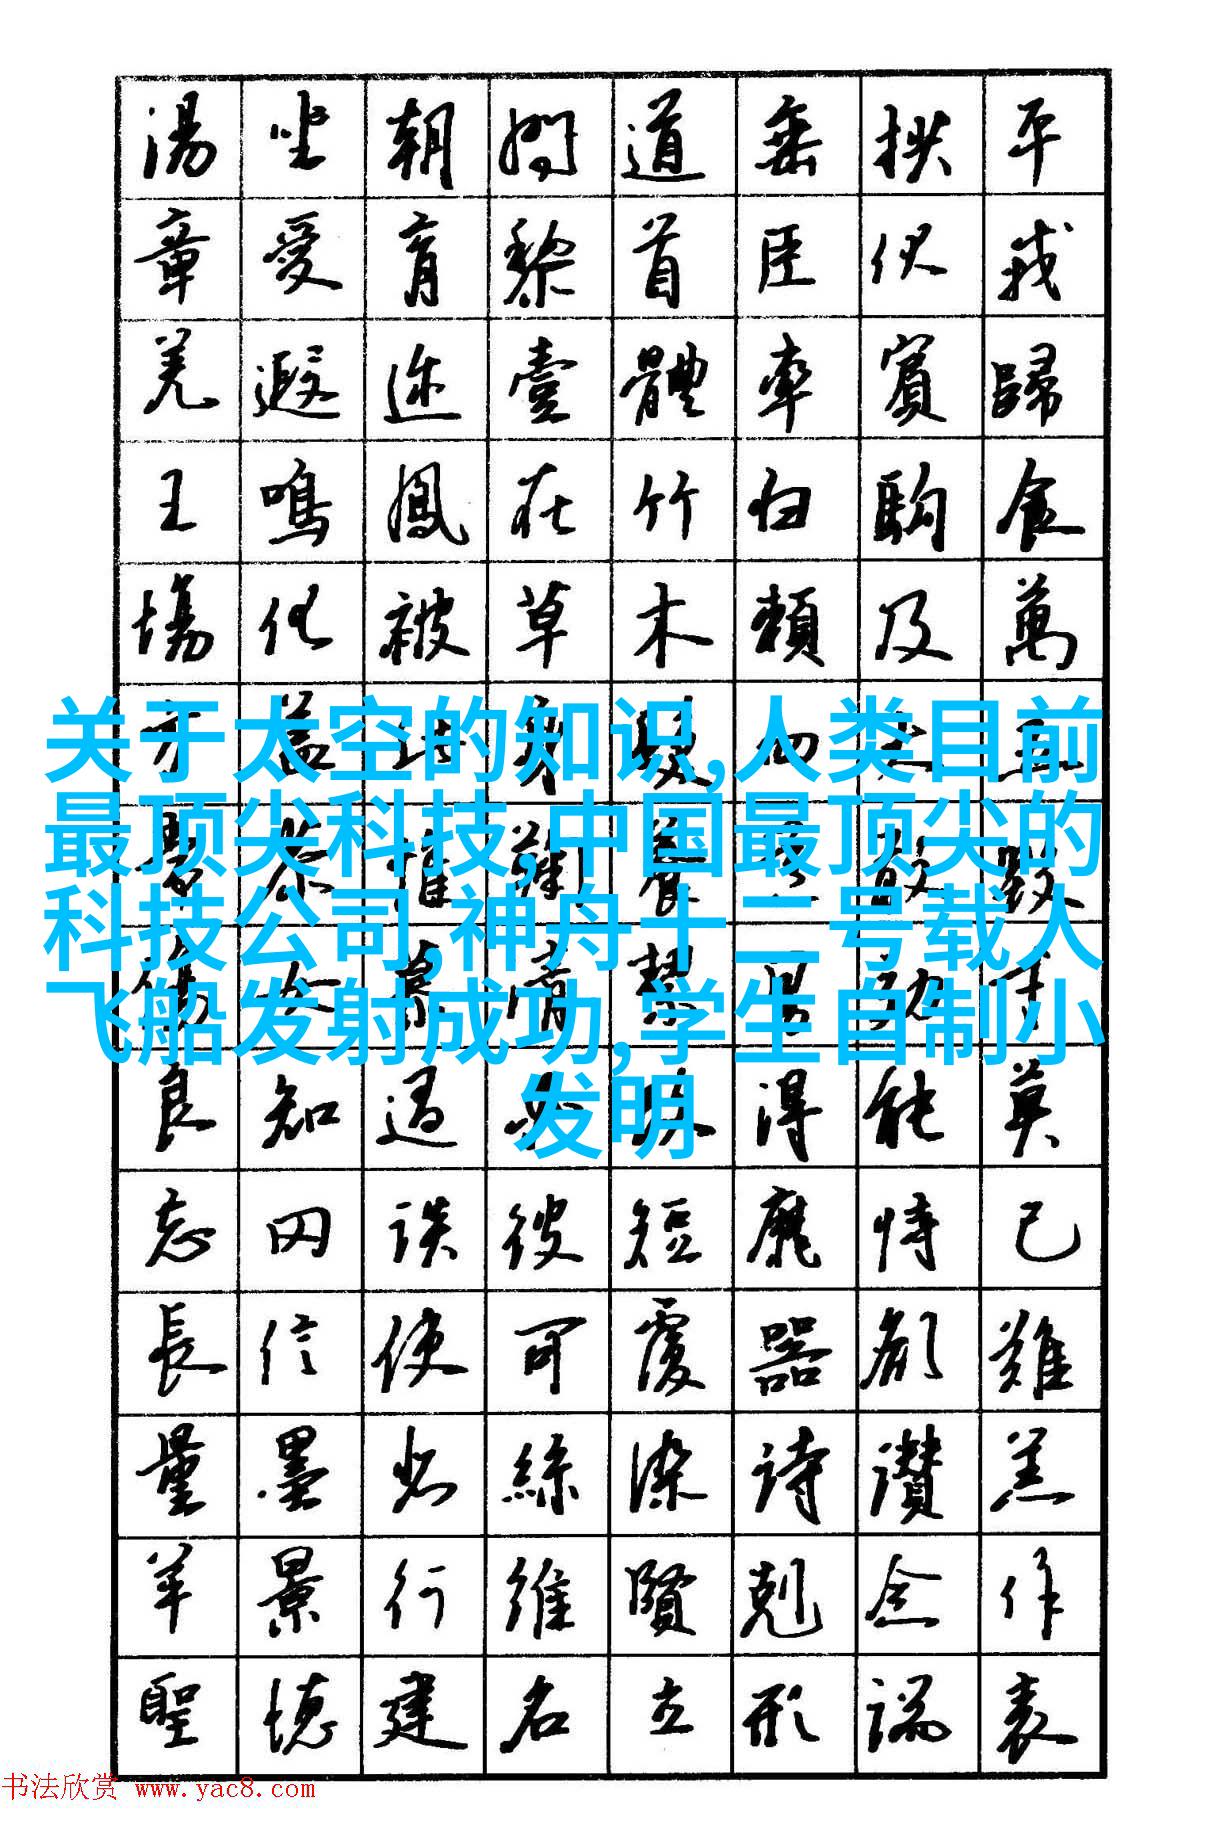 湯坐朝問道垂拱平
章愛育黎首臣伏戎
羌遐迩壹體率賓歸
王鳴鳳在竹白駒食
場化被草木賴及萬
关于太空的知识,人类目前
最顶尖科技,中国最顶尖的
科技公司,神舟十二号载人
飞船发射成功,学生自制小
发明
良知過必改得能莫
忘罔談彼短靡恃己
長信使可覆器欲難
量墨悲絲染詩讚羔
羊景行維賢剋念作
聖德建名立形端表
书法欣赏 www.yac8.com